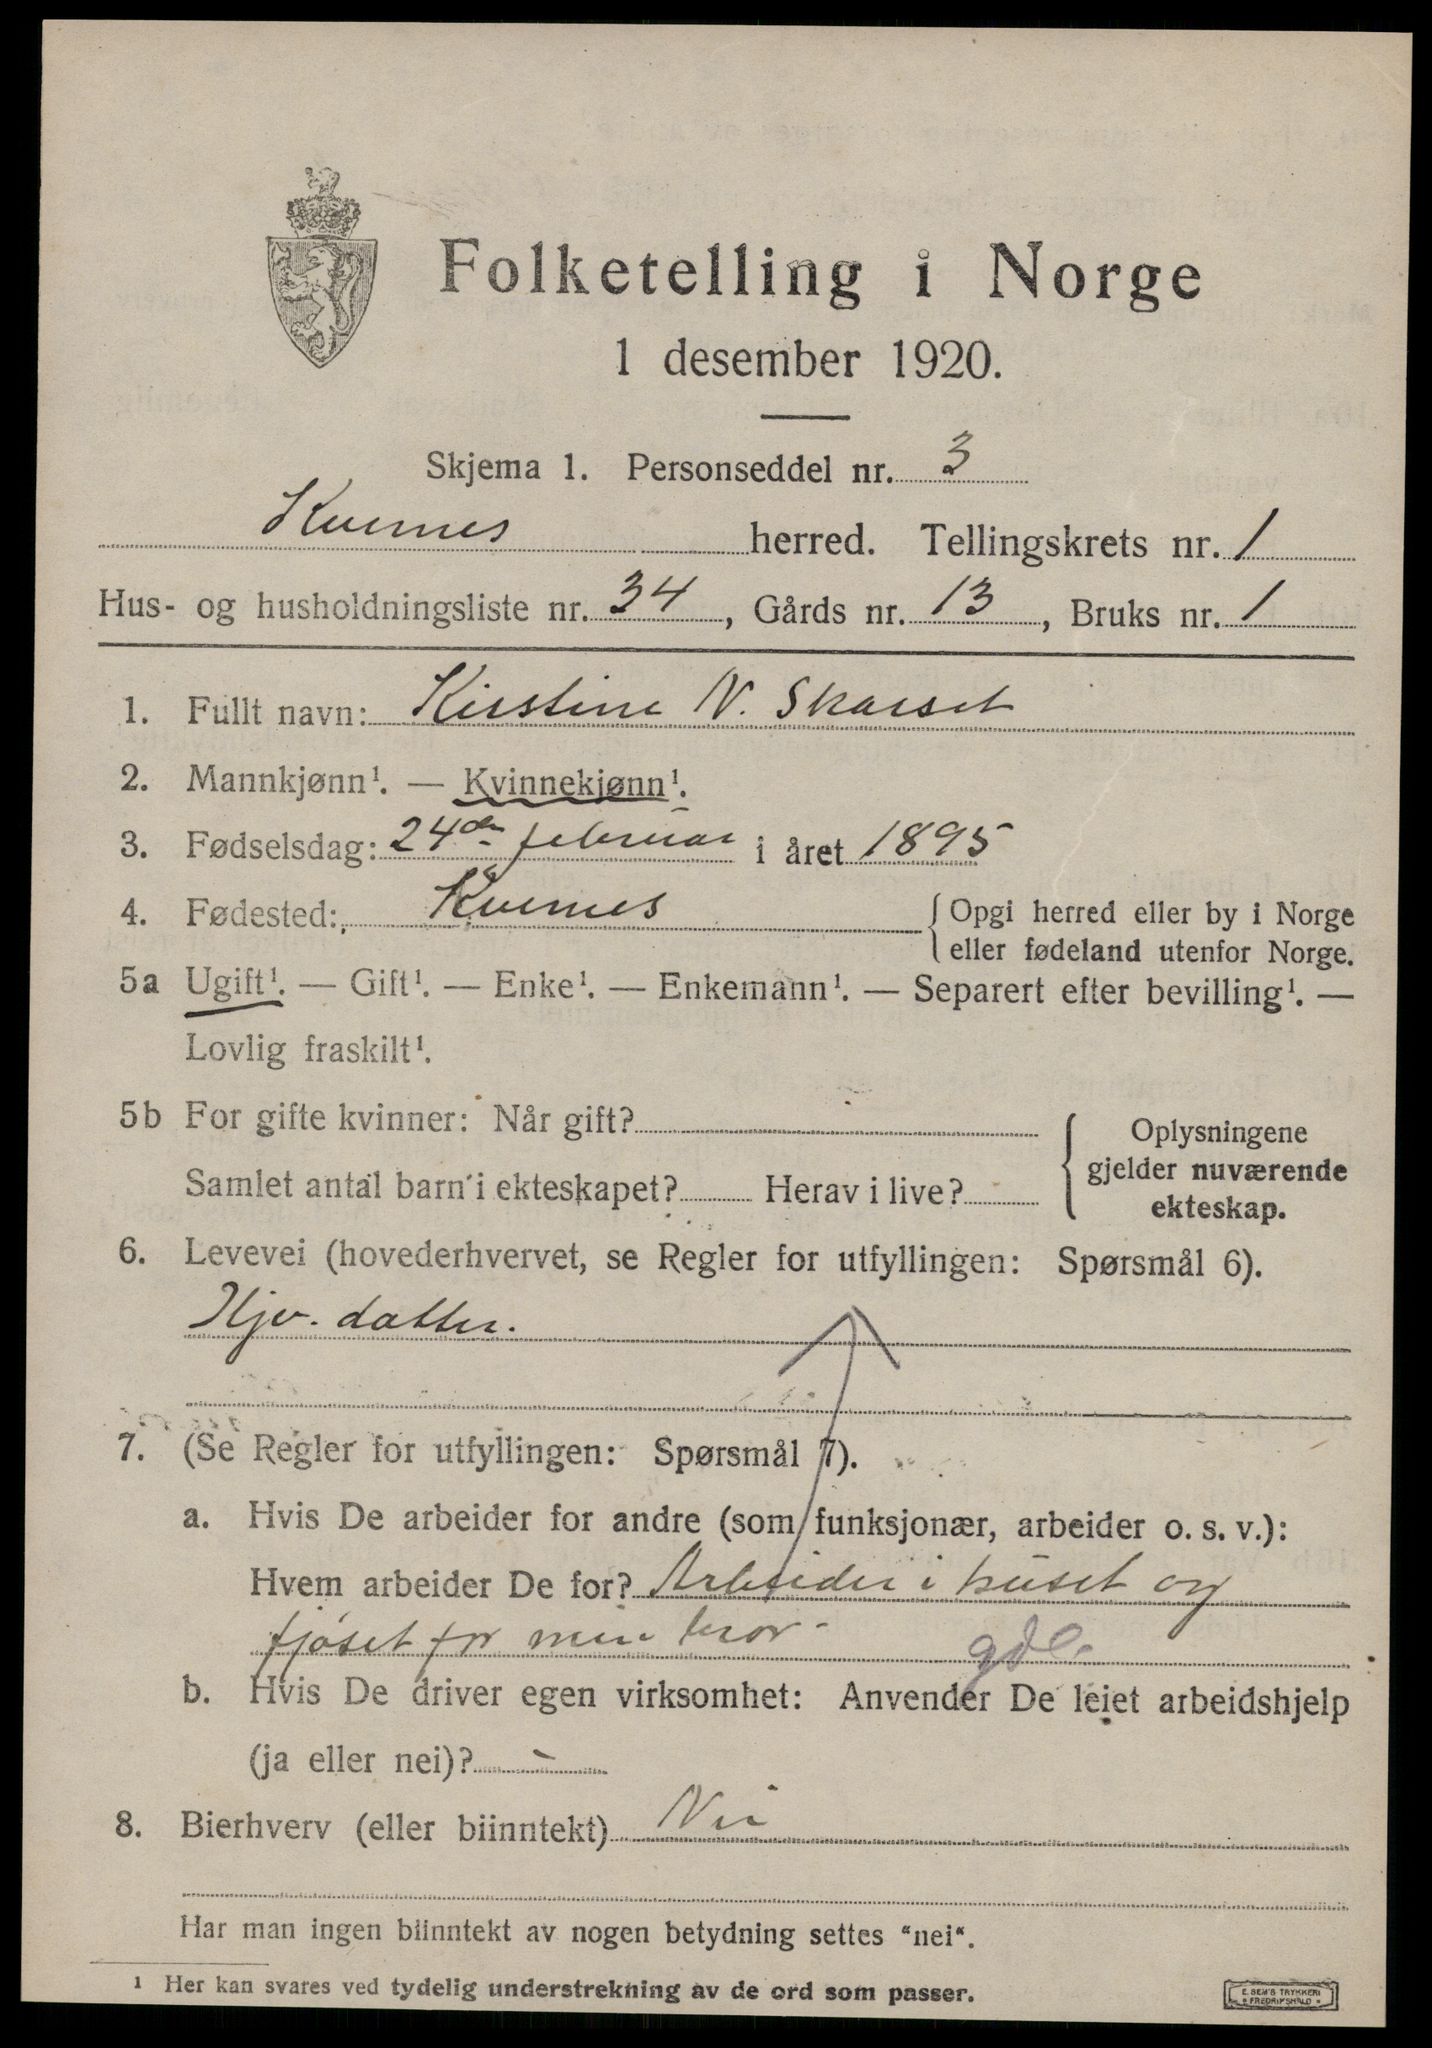 Folketelling i Norge
1 desember 1920.
Skjema 1. Personseddel nr. 3
Kvernes herred. Tellingskrets nr. 1
Hus- og husholdningsliste nr. 34, Gårds nr. 13, Bruks nr. 1
1. Fullt navn: Kirstine N. Skarset
2. Mannkjønn¹. — Kvinnekjønn¹.
3. Fødselsdag: 24de februar i året 1895
4. Fødested: Kvernes {Opgi herred eller by i Norge
eller fødeland utenfor Norge.
5a Ugift¹. — Gift¹. — Enke¹. — Enkemann¹. — Separert efter bevilling¹. —
Lovlig fraskilt¹.
5b For gifte kvinner: Når gift?
Samlet antal barn i ekteskapet? Herav i live?
{Oplysningene
gjelder nuværende
ekteskap.
6. Levevei (hovederhvervet, se Regler for utfyllingen: Spørsmål 6).
Hjv. datter.
7. (Se Regler for utfyllingen: Spørsmål 7).
a. Hvis De arbeider for andre (som funksjonær, arbeider o. s. v.):
Hvem arbeider De for? Arbeider i huset og
fjøset for min bror - gde.
b. Hvis De driver egen virksomhet: Anvender De leiet arbeidshjelp
(ja eller nei)? -
8. Bierhverv (eller biinntekt) Nei
Har man ingen biinntekt av nogen betydning settes "nei".
1 Her kan svares ved tydelig understrekning av de ord som passer.
E. SEM'S TRYKKERI
* FREDRIKSHALD *